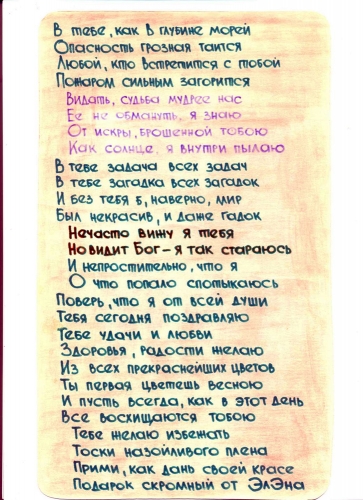 В тебе, как в глубине морей
Опасность грозная таится
Любой, кто встретится с тобой
Пожаром сильным загорится
Видать, судьба мудрее нас
Ее не обмануть, я знаю
От искры, брошенной тобою
Как солнце, я внутри пылаю
В тебе задача всех задач
В тебе загадка всех загадок
И без тебя б, наверно, мир
Был некрасив, и даже гадок
Нечасто вижу я тебя
Но видит Бог – я так стараюсь
И непростительно, что я
О что попало спотыкаюсь
Поверь, что я от всей души
Тебя сегодня поздравляю
Тебе удачи и любви
Здоровья, радости желаю
Из всех прекраснейших цветов
Ты первая цветешь весною
И пусть всегда, как в этот день
Все восхищаются тобою
Тебе желаю избежать
Тоски назойливого плена
Прими, как дань своей красе
Подарок скромный от ЭлЭна